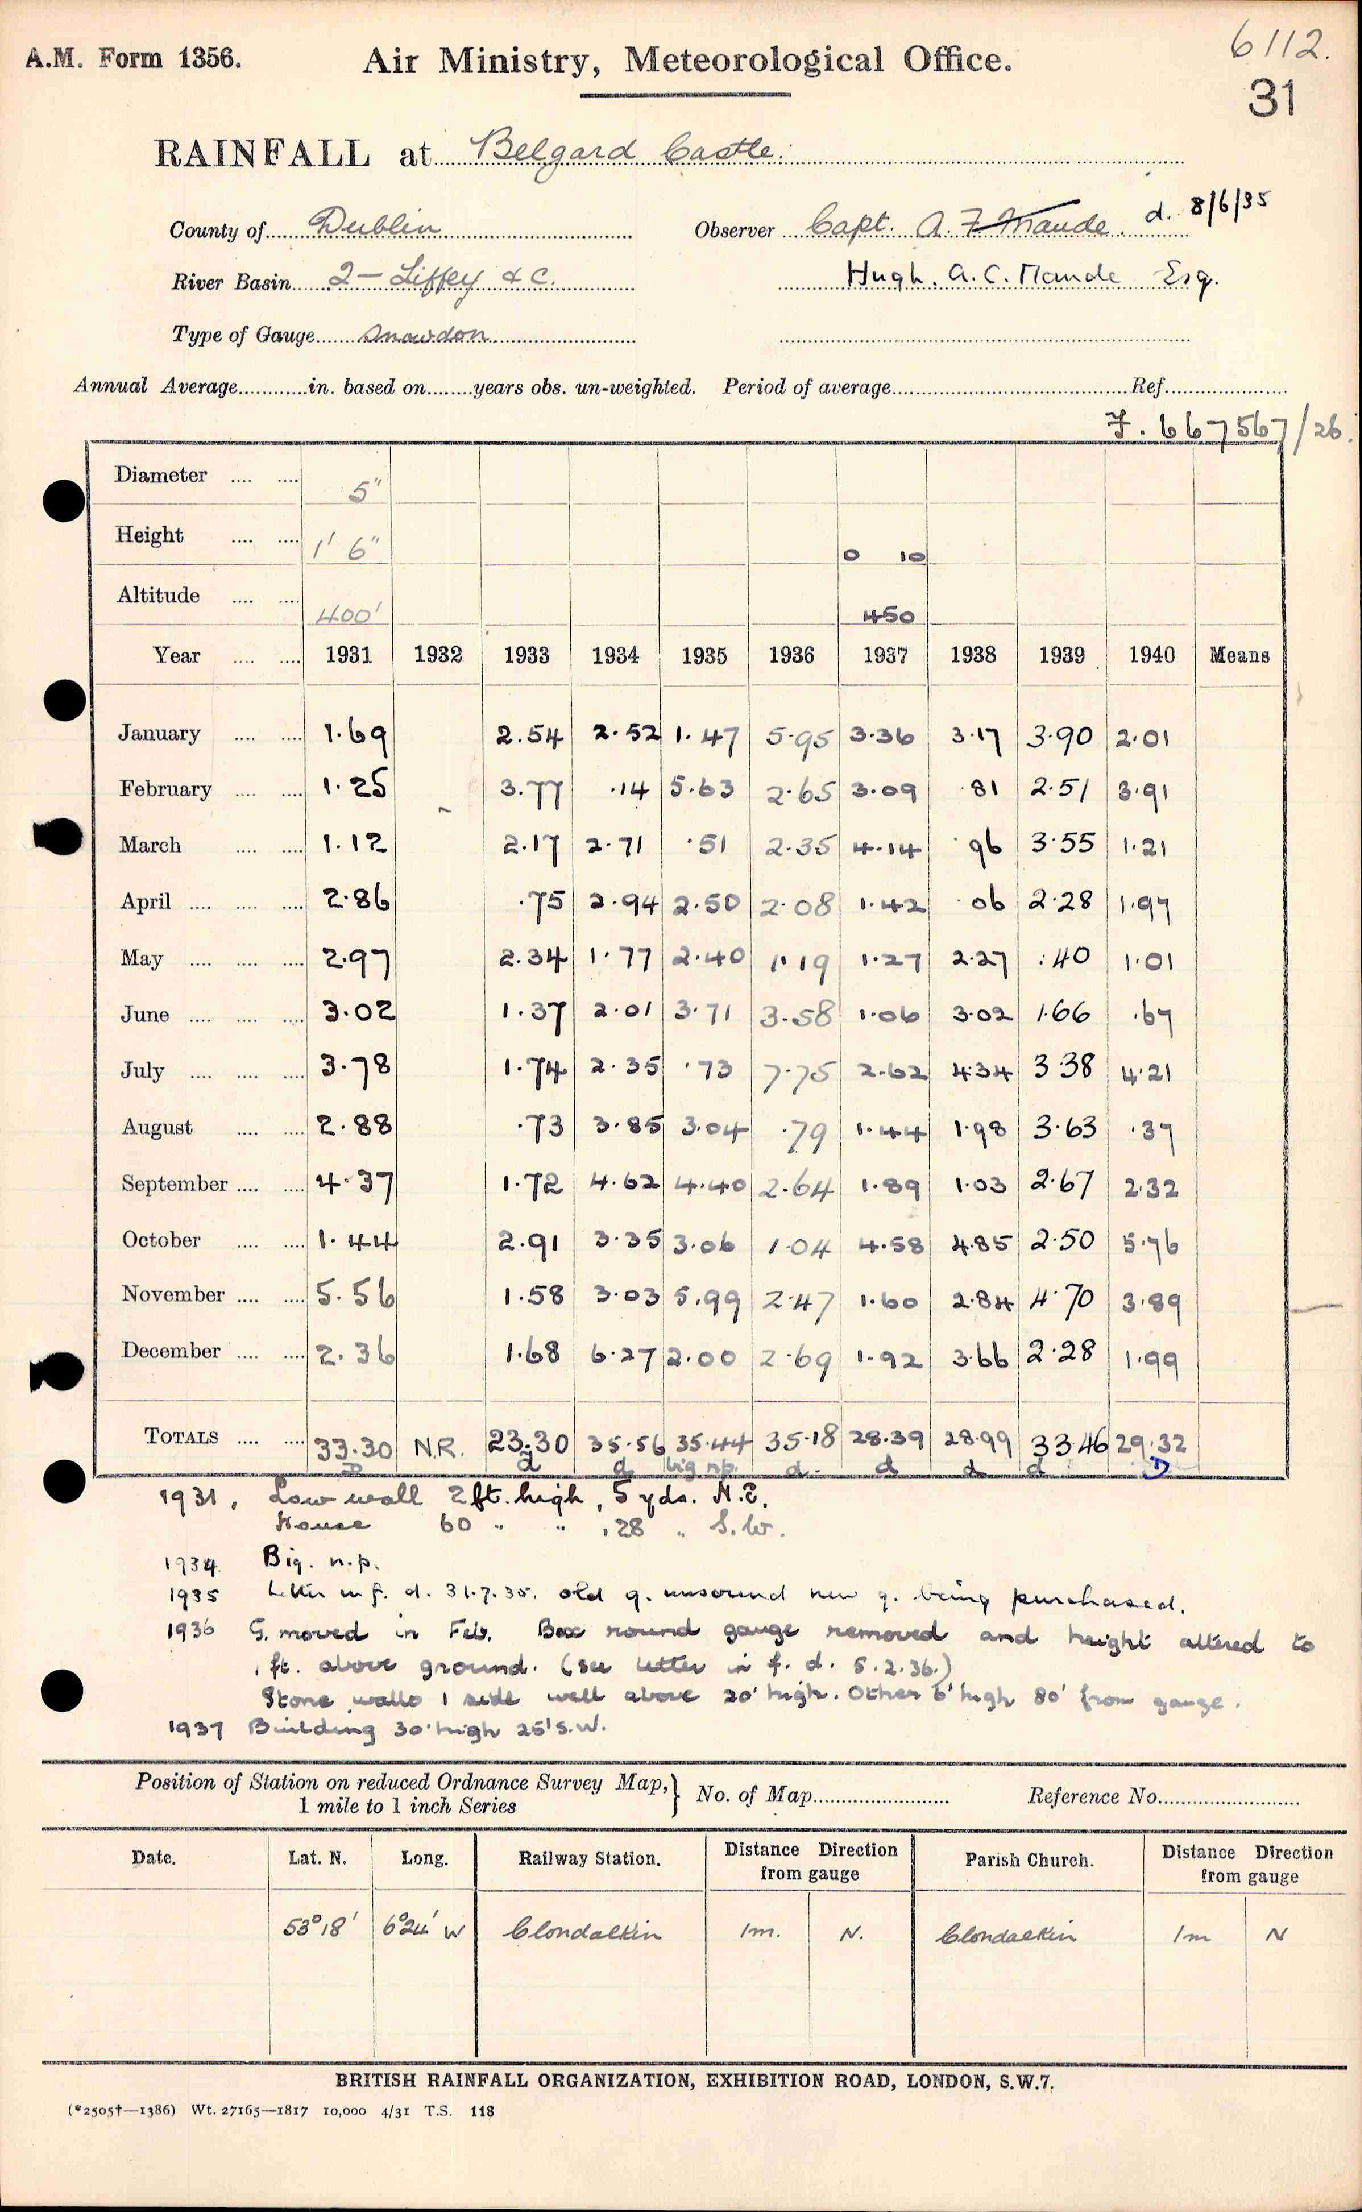 6112.
A.M. Form 1356. Air Ministry, Meteorological Office.
31
RAINFALL at Belgard Castle.
County of Dublin Observer Capt. A. F. Maude. d. 8/6/35
River Basin 2 - Liffey &c. Hugh. A. C. Maude Esq.
Type of Gauge Snowdon
Annual Average in. based on years obs. un-weighted. Period of average Ref.
F. 667567/26.
Diameter 5"
Height 1' 6" 0 10
Altitude 400' 450
Year 1931 1932 1933 1934 1935 1936 1937 1938 1939 1940 Means
January 1.69 2.54 2.52 1.47 5.95 3.36 3.17 3.90 2.01
February 1.25 3.77 .14 5.63 2.65 3.09 .81 2.51 3.91
March 1.12 2.17 2.71 .51 2.35 4.14 .96 3.55 1.21
April 2.86 .75 2.94 2.50 2.08 1.42 .06 2.28 1.97
May 2.97 2.34 1.77 2.40 1.19 1.27 2.27 .40 1.01
June 3.02 1.37 2.01 3.71 3.58 1.06 3.02 1.66 .67
July 3.78 1.74 2.35 .73 7.75 2.62 4.34 3.38 4.21
August 2.88 .73 3.85 3.04 .79 1.44 1.98 3.63 .37
September 4.37 1.72 4.62 4.40 2.64 1.89 1.03 2.67 2.32
October 1.44 2.91 3.35 3.06 1.04 4.58 4.85 2.50 5.76
November 5.56 1.58 3.03 5.99 2.47 1.60 2.84 4.70 3.89
December 2.36 1.68 6.27 2.00 2.69 1.92 3.66 2.28 1.99
TOTALS 33.30 N.R. 23.30 35.56 35.44 35.18 28.39 28.99 33.46 29.32
D d d big n.p. d. d d d D
1931, Low wall 2 ft. high, 5 yds. N.E.
House 60 " " , 28 " S.W.
1934 Big. n.p.
1935 Letter in f. d. 31.7.35. old g. unsound new g. being purchased.
1936 G. moved in Feb. Box round gauge removed and height altered to
1 ft. above ground. (See letter in f. d. 5.2.36.)
Stone walls 1 side well above 20' high. Other 6' high 80' from gauge.
1937 Building 30' high 25' S.W.
Position of Station on reduced Ordnance Survey Map, } No. of Map Reference No.
1 mile to 1 inch Series
Date. Lat. N. Long. Railway Station. Distance Direction from gauge Parish Church. Distance Direction from gauge
53°18' 6°24' W Clondalkin 1m. N. Clondalkin 1m N
BRITISH RAINFALL ORGANIZATION, EXHIBITION ROAD, LONDON, S.W.7.
(*2505†—1386) Wt. 27165—1817 10,000 4/31 T.S. 118